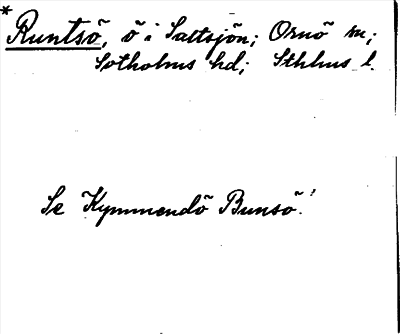 * Runtsö, ö i Saltsjön; Ornö sn;
Sotholms hd; Sthlms l.
Se Kymmendö Bunsö.!